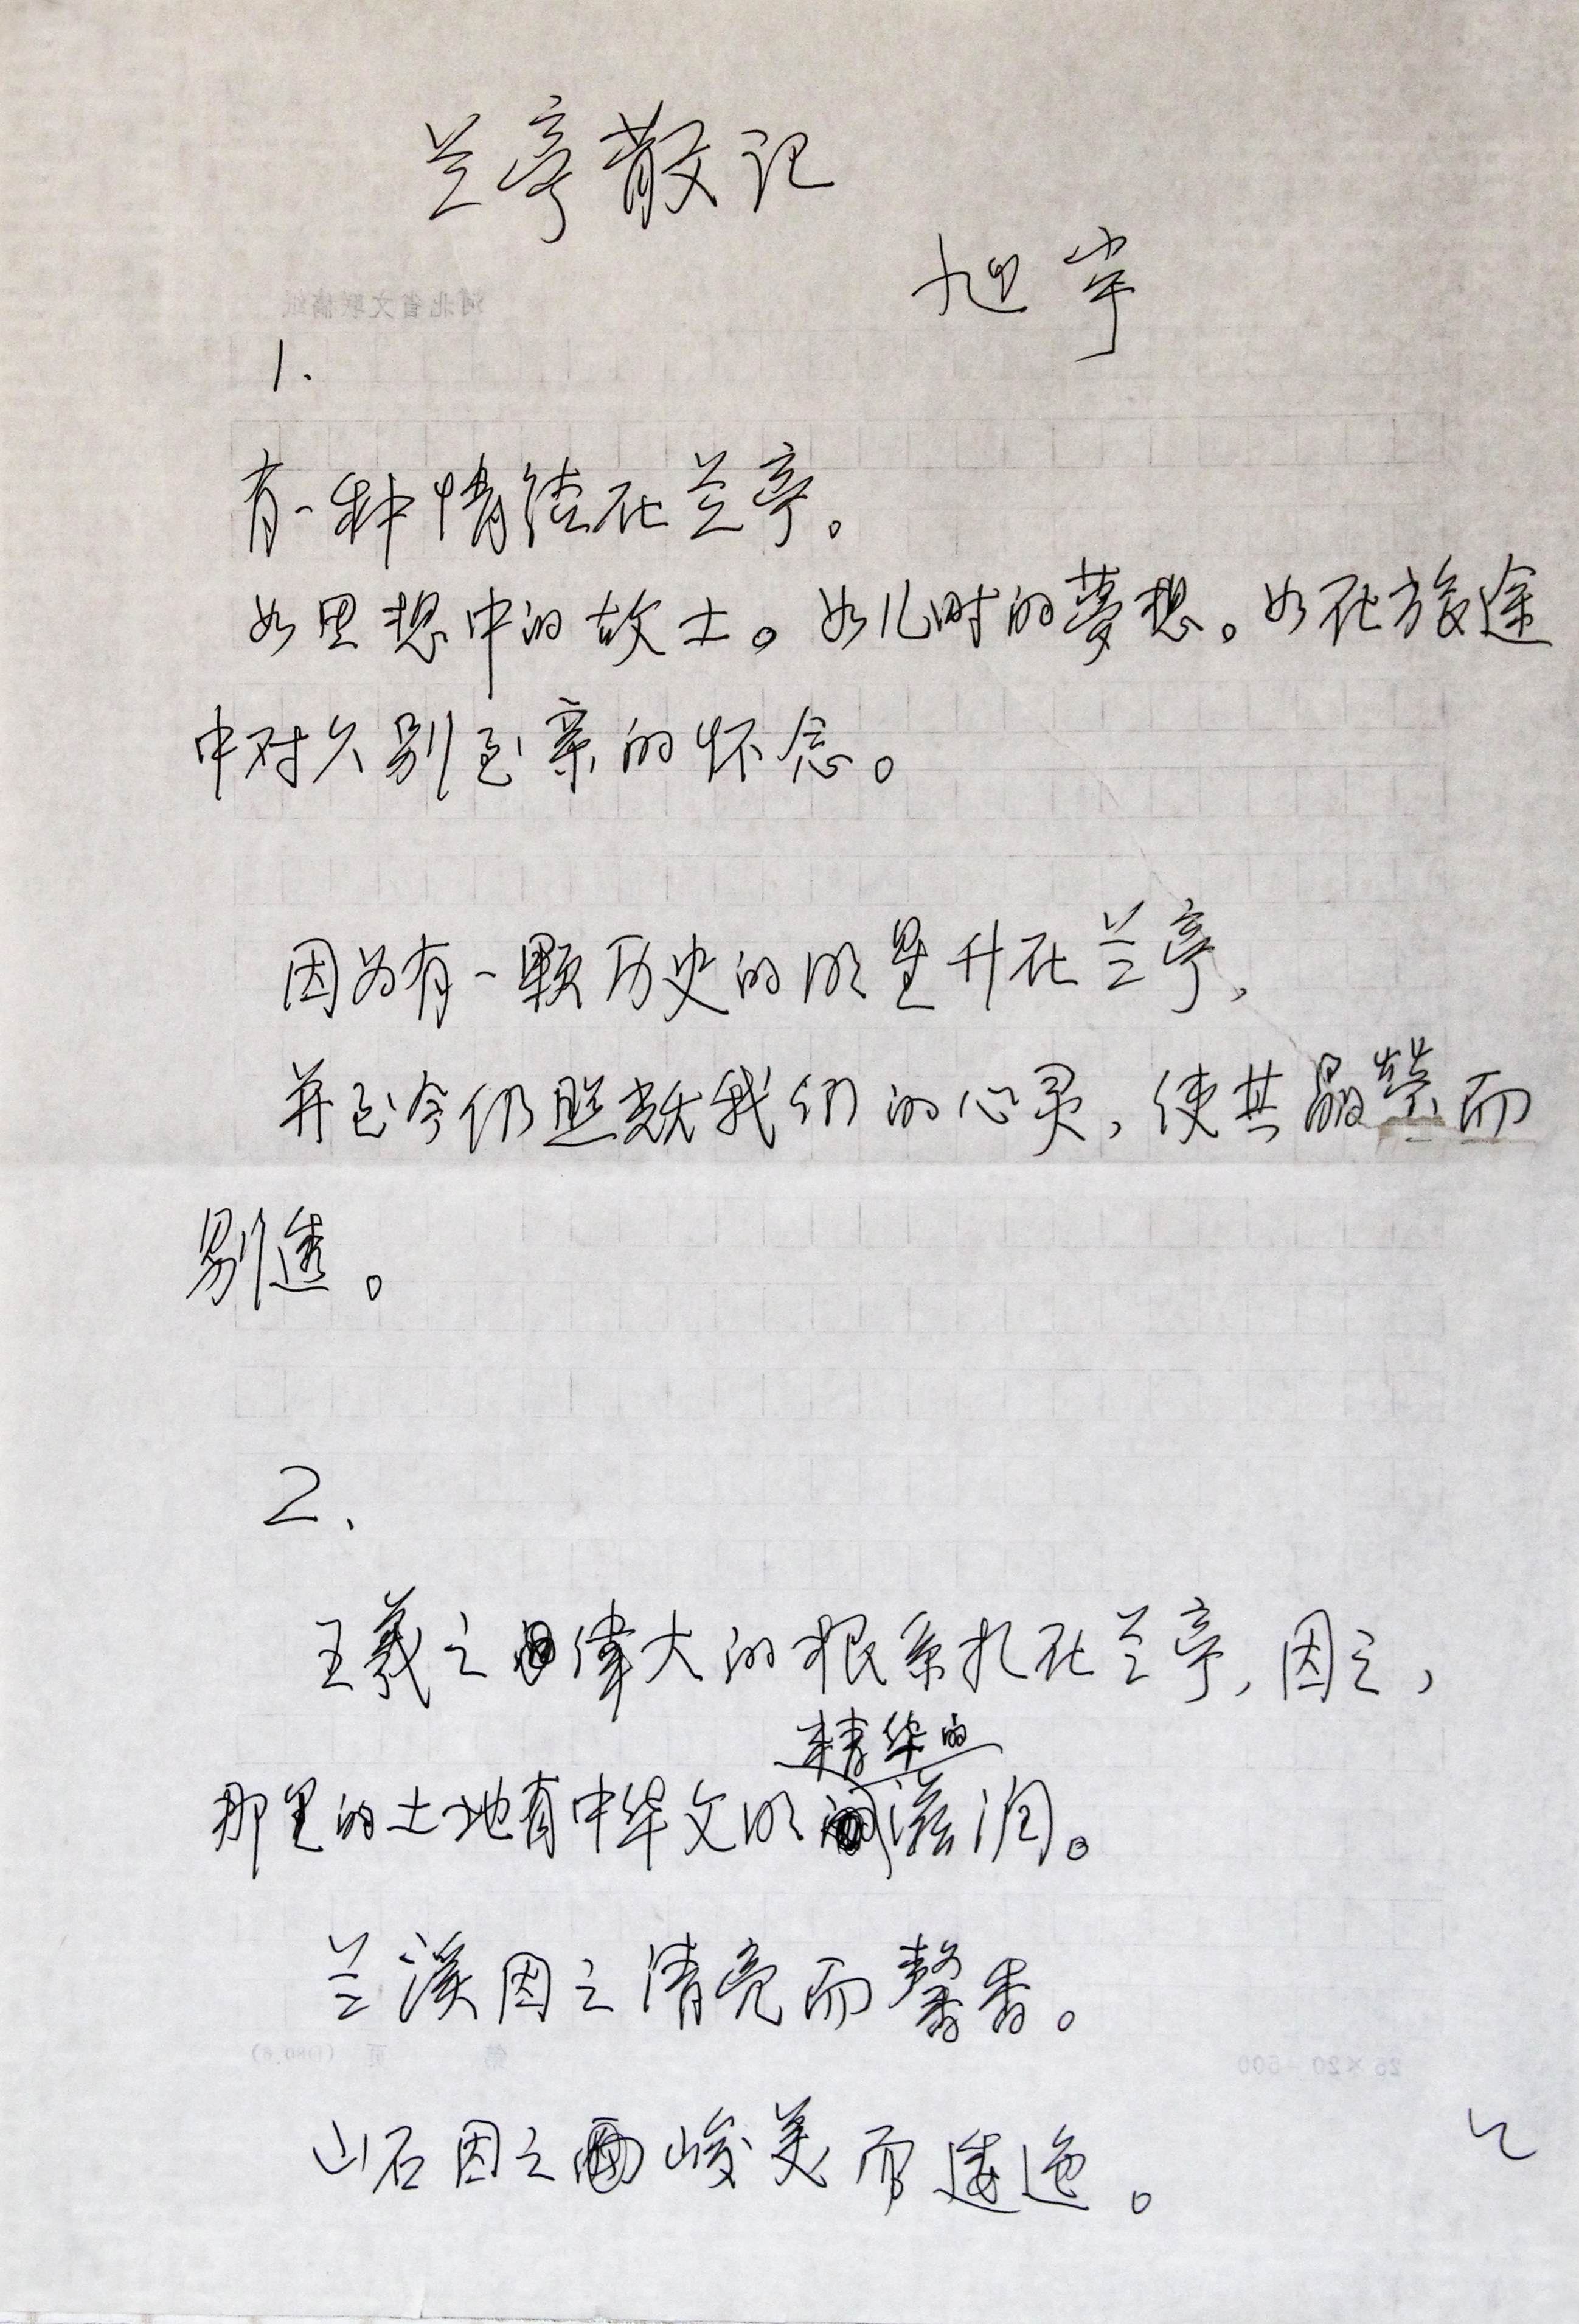 兰亭散记
旭宇
1.
有一种情结在兰亭。
如思想中的故土。如儿时的夢想。如在旅途
中对久别至亲的怀念。
因为有一颗历史的明星升在兰亭,
并至今仍照耀我们的心灵,使其晶莹而
剔透。
2、
王羲之偉大的根系扎在兰亭,因之,
精华的
那里的土地有中华文明滋润。
兰溪因之清亮而馨香。
山石因之峻美而逶迤。